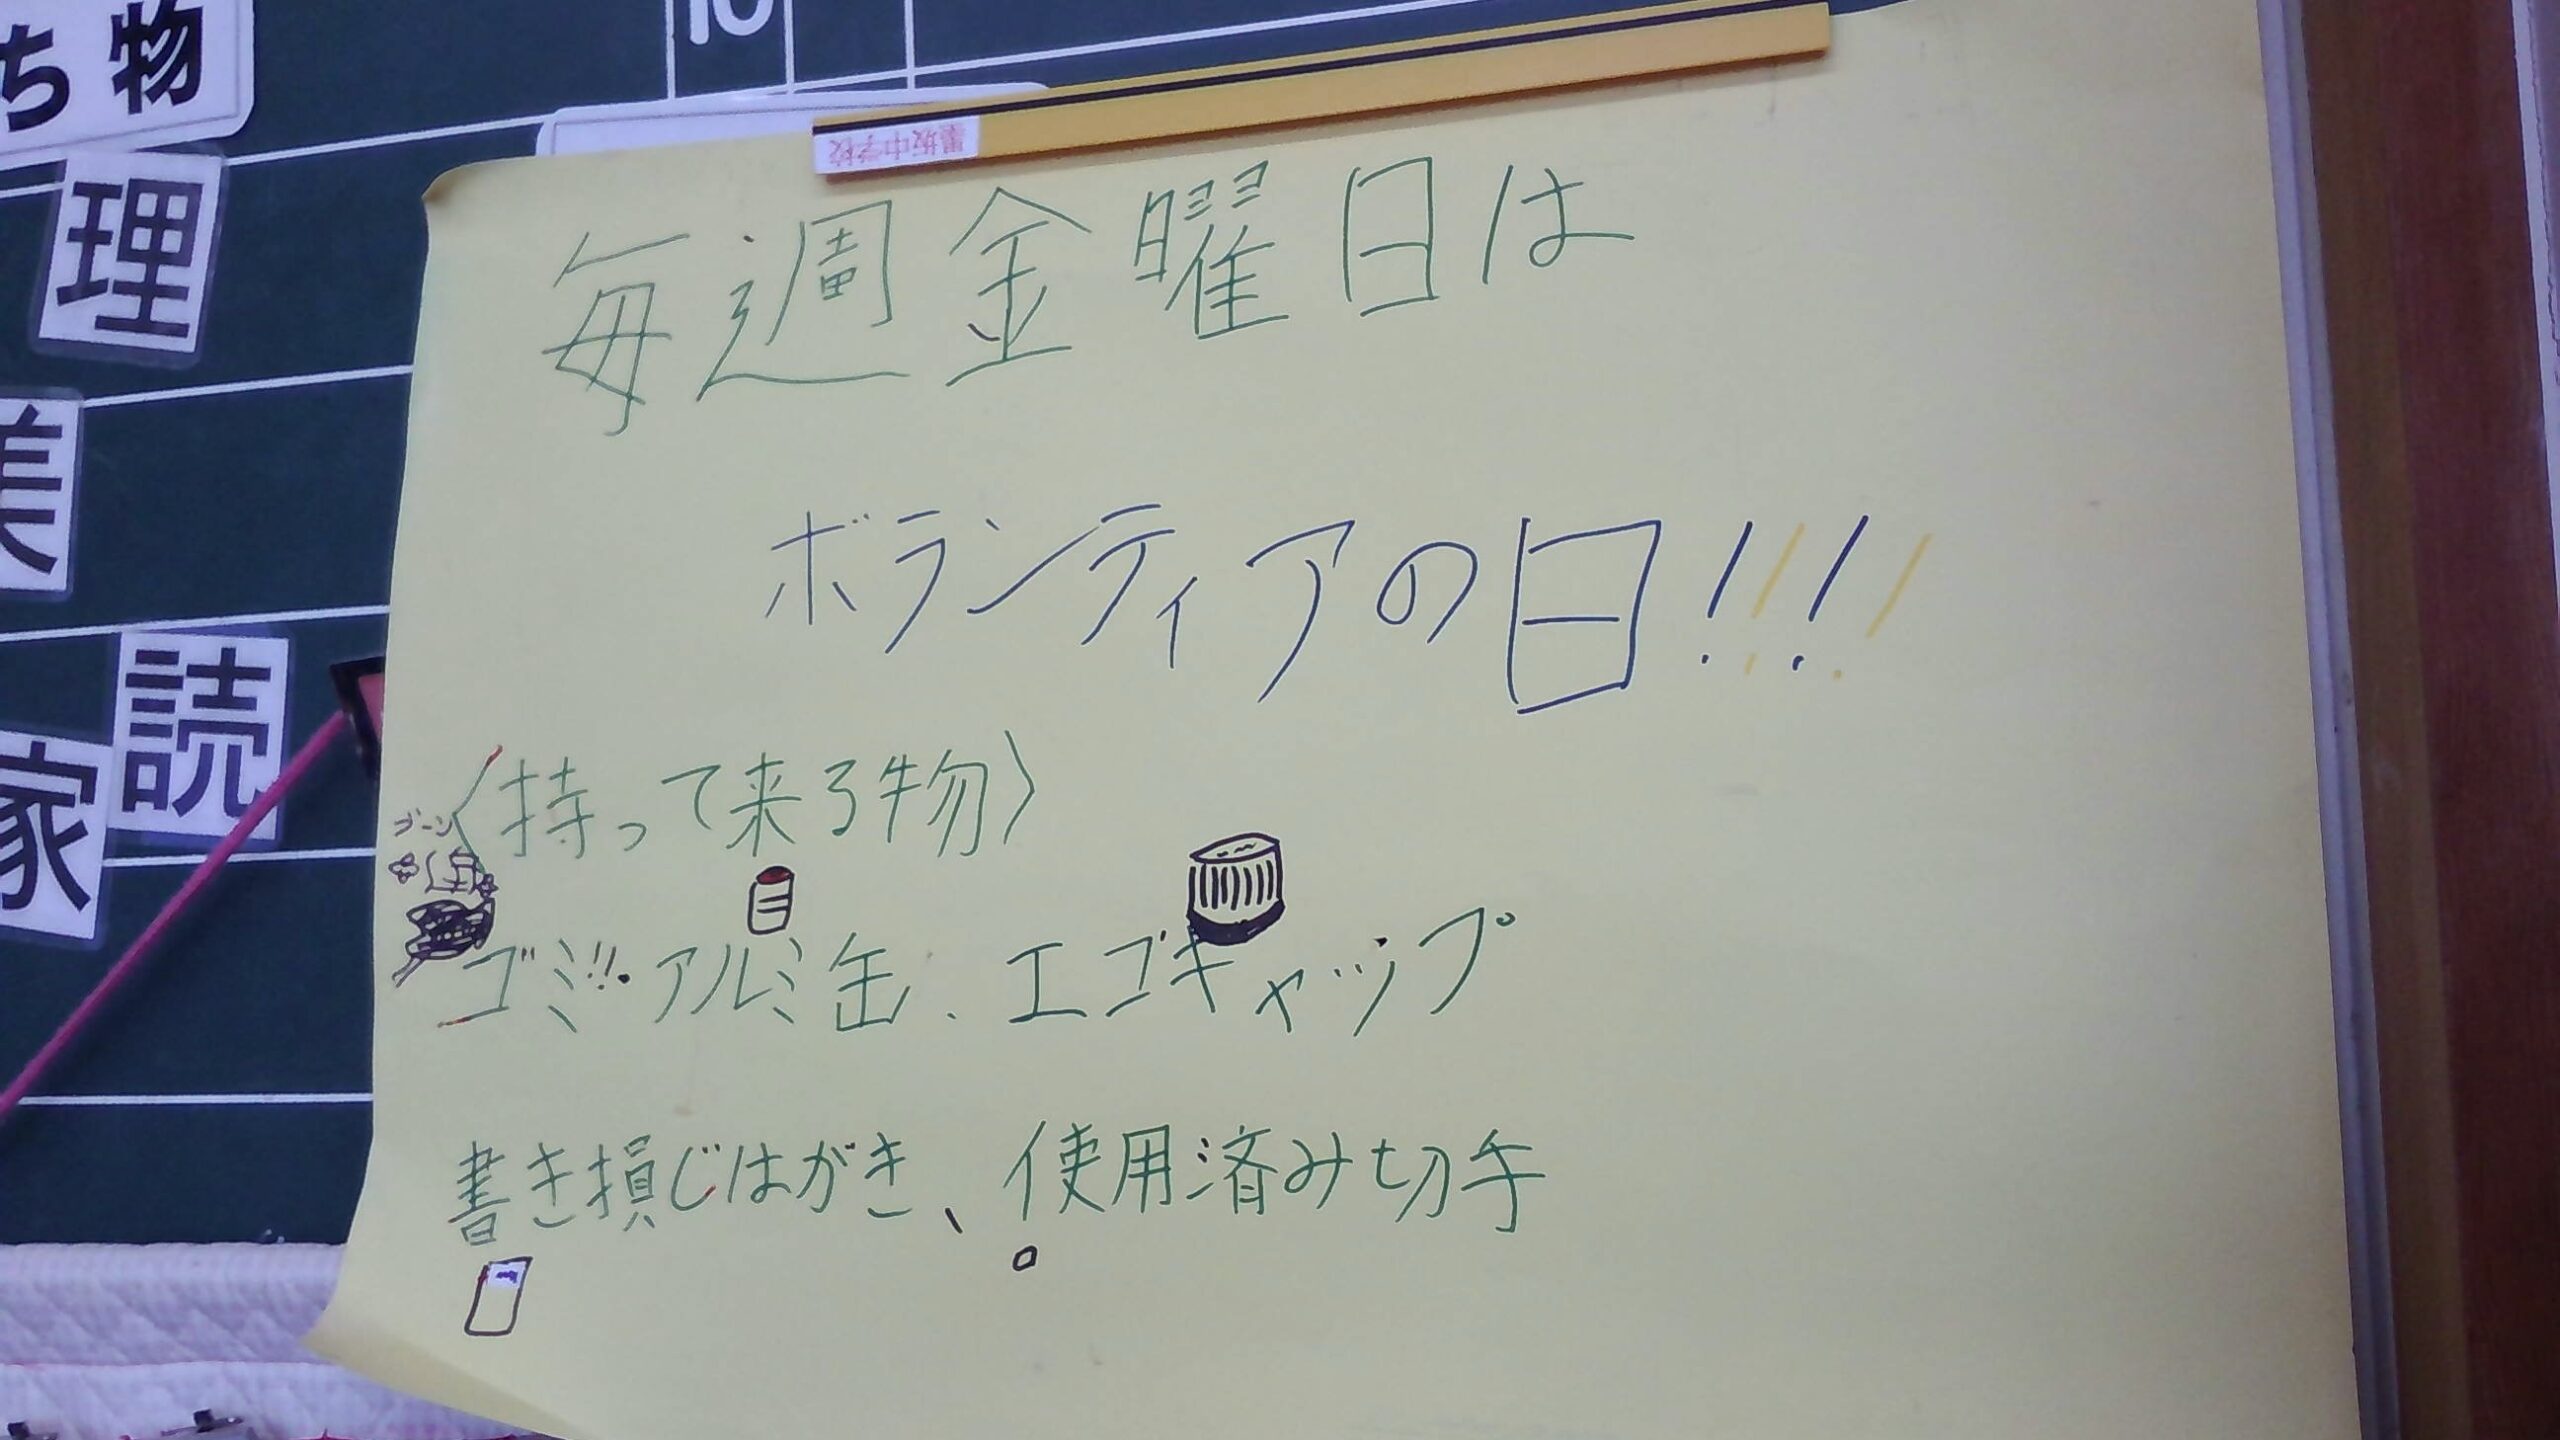 10
ち物
理
美
読
家
墨坂中学校
毎週金曜日は
ボランティアの日!!!!
〈持って来る物〉
ゴーン
ゴミ!!・アルミ缶、エゴキャップ
書き損じはがき、使用済み切手